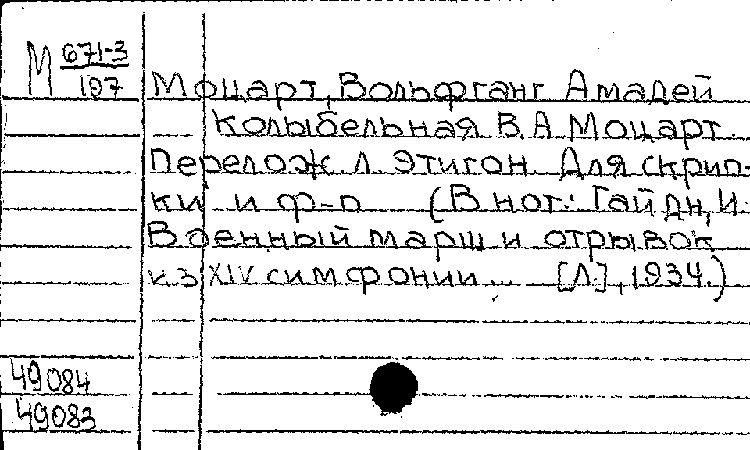 М 671-3
197
Моцарт, Вольфганг Амадей
Колыбельная В.А. Моцарт.
Перелож. Л. Этигон. Для скрип-
ки и ф-п (В нот.: Гайдн, И.
Военный марш и отрывок
из XIV симфонии... [Л.], 1934.)
49084
49083